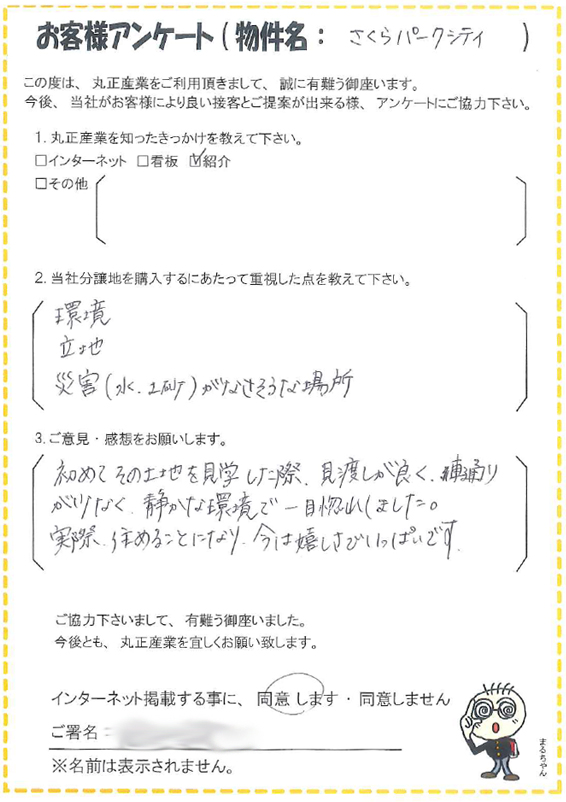 お客様アンケート(物件名: さくらパークシティ )
この度は、丸正産業をご利用頂きまして、誠に有難う御座います。
今後、当社がお客様により良い接客とご提案が出来る様、アンケートにご協力下さい。
1.丸正産業を知ったきっかけを教えて下さい。
□インターネット □看板 ☑紹介
□その他
2.当社分譲地を購入するにあたって重視した点を教えて下さい。
環境
立地
災害(水、土砂)が少なさそうな場所
3.ご意見・感想をお願いします。
初めてその土地を見学した際、見渡しが良く、車通り
が少なく、静かな環境で一目惚れしました。
実際、住めることになり、今は嬉しさでいっぱいです。
ご協力下さいまして、有難う御座いました。
今後とも、丸正産業を宜しくお願い致します。
インターネット掲載する事に、同意します・同意しません
ご署名:
※名前は表示されません。
まるちゃん